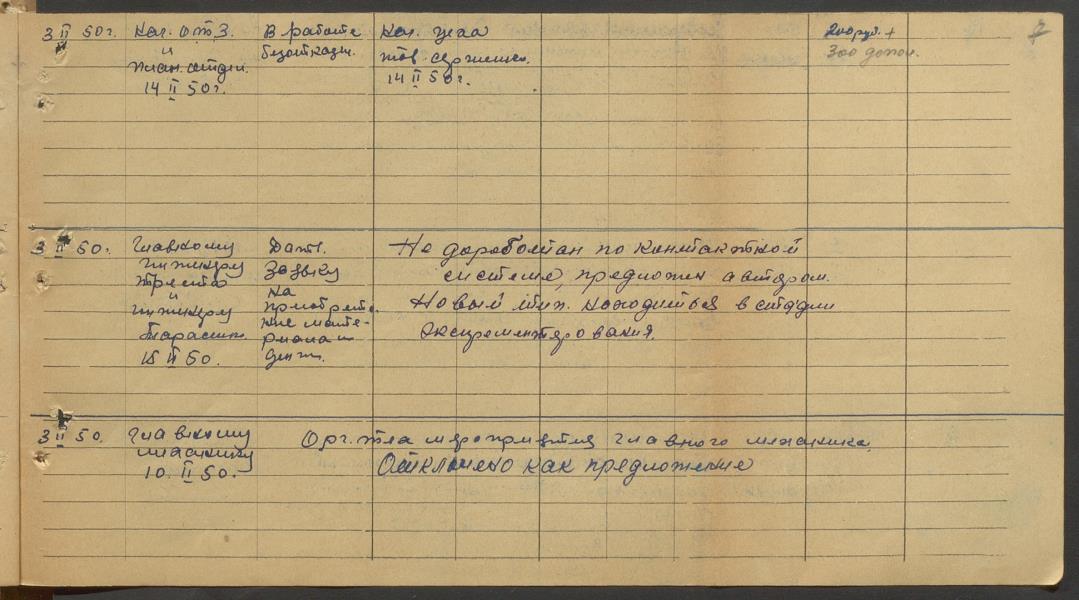 3 II 50г.
Нач. О.Т.З.
и
план. отдел.
14 II 50г.
В работе
Нач. цеха
тов.
14 II 50г.
200 руб. +
300 допол.
7
3 II 50.
Главному
инженеру
треста
и
инженеру
15 II 50.
Дать
заявку
на
приобрете-
ние мате-
риала и
Не доработан по контактной
системе, предложен автором.
Новый тип. находиться в стадии
экспрементирования.
3 II 50.
Главному
механику
10. II 50.
Орг. тех мероприятия главного механика.
Отклонено как предложение